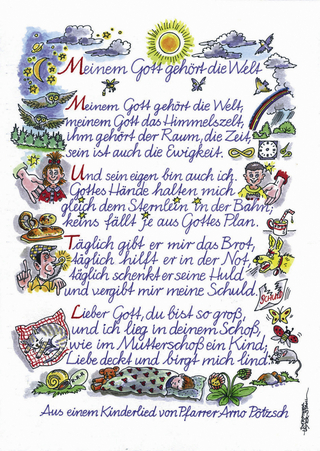 Meinem Gott gehört die Welt
Meinem Gott gehört die Welt,
meinem Gott das Himmelszelt,
ihm gehört der Raum, die Zeit,
sein ist auch die Ewigkeit.
Und sein eigen bin auch ich.
Gottes Hände halten mich
gleich dem Sternlein in der Bahn;
keins fällt je aus Gottes Plan.
Täglich gibt er mir das Brot,
täglich hilft er in der Not,
täglich schenkt er seine Huld
und vergibt mir meine Schuld.
Lieber Gott, du bist so groß,
und ich lieg in deinem Schoß,
wie im Mutterschoß ein Kind;
Liebe deckt und birgt mich lind.
Aus einem Kinderlied von Pfarrer Arno Pötzsch